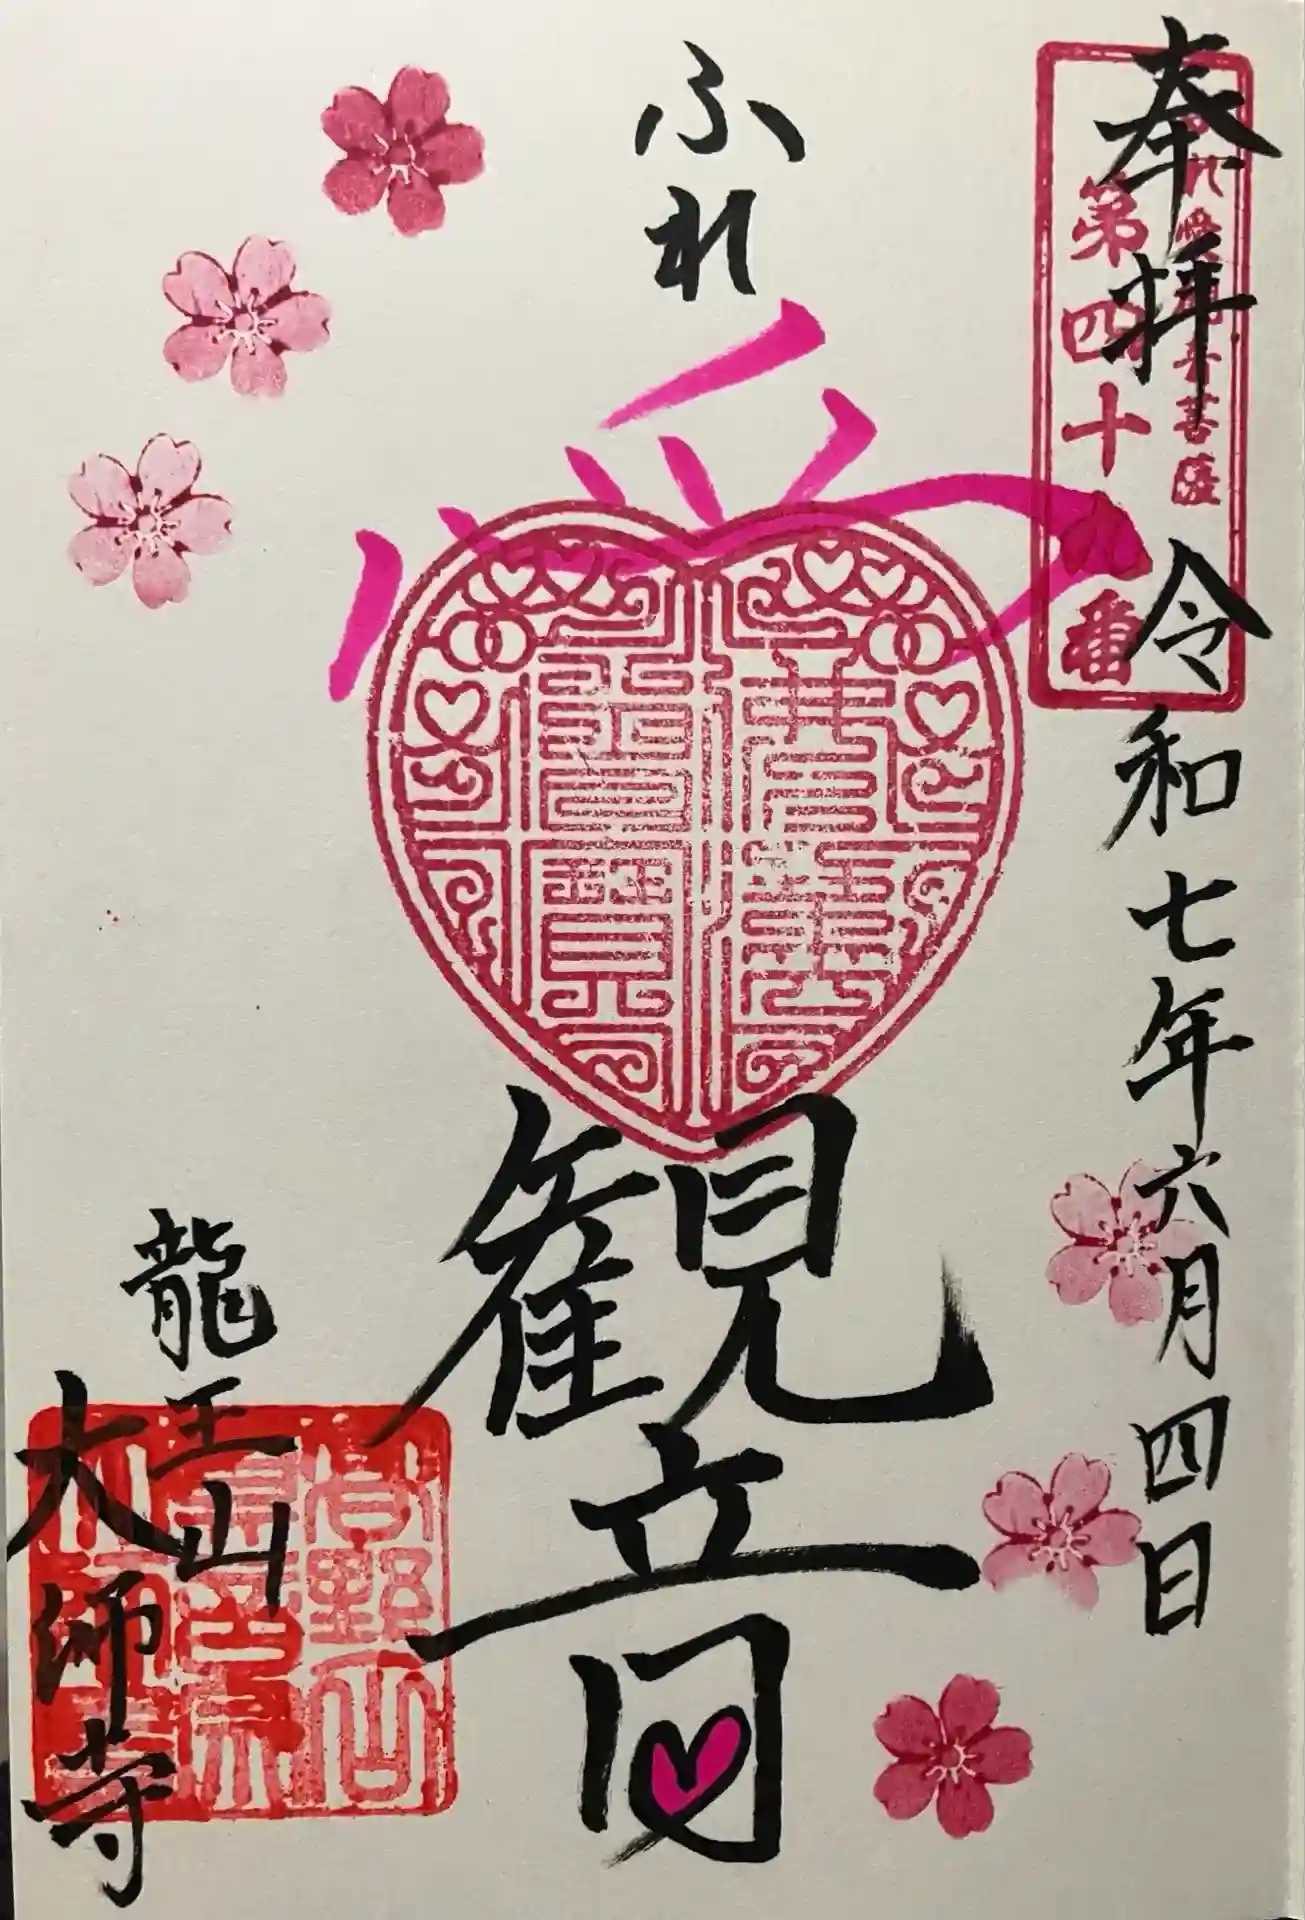 奉拝
令和七年六月四日
第四十九番
ふれ愛観音
龍王山
大師寺
高野山